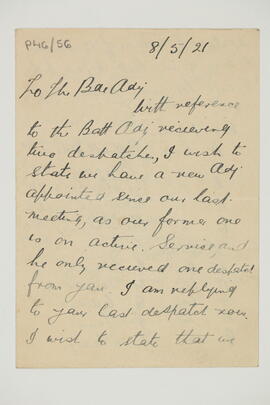 P46/56
8/5/21
To the Bde Adj
With reference
to the Batt Adj recieving
two despatches, I wish to
state we have a new Adj
appointed since our last
meeting, as our former one
is on active. Service, and
he only recieved one despatch
from you. I am replying
to your last despatch now.
I wish to state that we